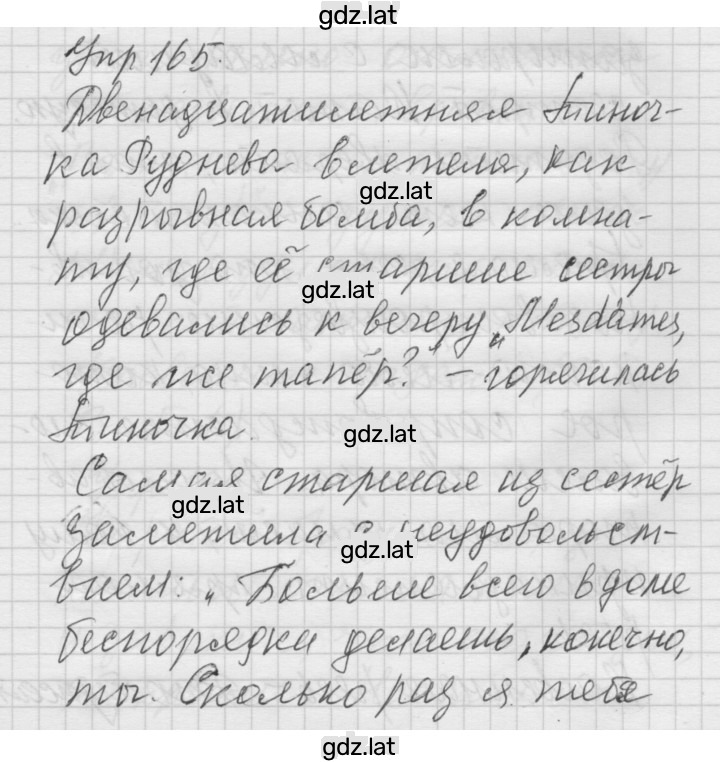 gdz.lat
Упр 165.
Двенадцатилетняя Тиноч-
ка Руднева влетела, как
gdz.lat
разрывная бомба, в комна-
ту, где её старшие сестры
gdz.lat
одевались к вечеру „Mesdames,
где же тапёр?" – горячилась
Тиночка.
gdz.lat
Самая старшая из сестёр
gdz.lat
заметила с неудовольст-
gdz.lat
вием: „Больше всего в доме
беспорядки делаешь, конечно,
ты. Сколько раз я тебя
gdz.lat